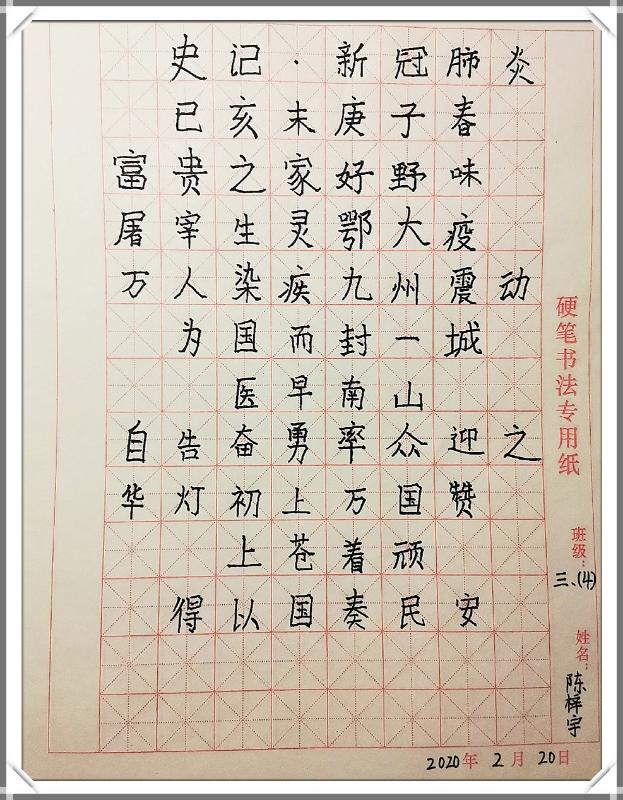 史记·新冠肺炎
已亥末庚子春
富贵之家好野味
屠宰生灵鄂大疫
万人染疾九州震动
为国而封一城
医早南山
自告奋勇率众迎之
华灯初上万国赞
上苍着顽
得以国奏民安
硬笔书法专用纸
班级：三、(4)
姓名：陈梓宇
2020年 2月 20日